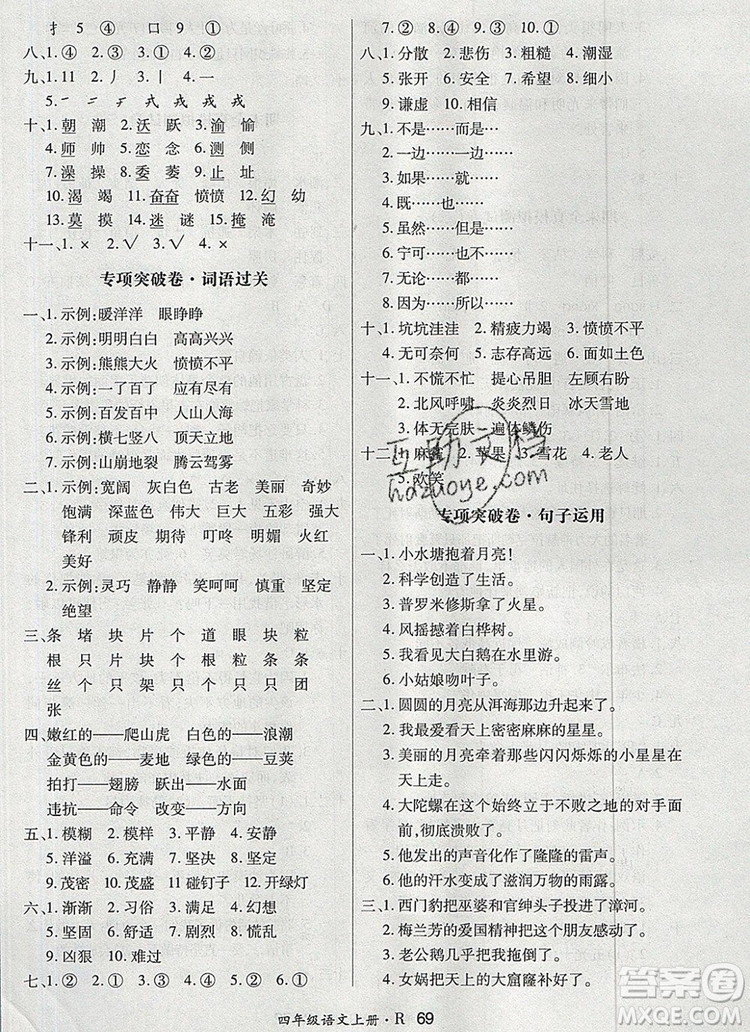 扌 5 ④ 口 9 ①
八、1.④ 2.② 3.① 4.③
九、1.11 2.丿 3.丨 4.一
十、1.朝 潮 2.沃 跃 3.渝 愉
4.师 帅 5.盗 盜 6.测 侧
7.澡 操 8.委 萎 9.止 址
10.渴 竭 11.奋奋 愤愤 12.幻 幼
13.莫 摸 14.迷 谜 15.掩 淹
十一、1.× 2.√ 3.√ 4.×
专项突破卷·词语过关
一、1.示例:暖洋洋 眼睁睁
2.示例:明明白白 高高兴兴
3.示例:熊熊大火 愤愤不平
4.示例:一了百了 应有尽有
5.示例:百发百中 人山人海
6.示例:横七竖八 顶天立地
7.示例:山崩地裂 腾云驾雾
二、1.示例:宽阔 灰白色 古老 美丽 奇妙
饱满 深蓝色 伟大 巨大 五彩 强大
锋利 顽皮 期待 叮咚 明媚 火红
美好
2.示例:灵巧 静静 笑呵呵 慎重 坚定
绝望
三、条 堵 块 片 个 道 眼 块 粒
根 只 片 块 个 只 根 粒 条
丝 个 只 架 只 个 只 只 团
张
四、嫩红的——爬山虎 白色的——浪潮
金黄色的——麦地 绿色的——豆荚
拍打——翅膀 跃出——水面
违抗——命令 改变——方向
五、1.模糊 2.模样 3.平静 4.安静
5.洋溢 6.充满 7.坚决 8.坚定
9.茂密 10.茂盛 11.碰钉子 12.开绿灯
六、1.渐渐 2.习俗 3.满足 4.幻想
5.坚固 6.舒适 7.剧烈 8.慌乱
9.凶狠 10.难过
七、1.② 2.① 3.② 4.① 5.② 6.①
7.② 8.② 9.① 10.②
八、1.分散 2.悲伤 3.粗糙 4.潮湿
5.张开 6.安全 7.希望 8.细小
9.谦虚 10.相信
九、1.不是……而是……
2.一边……一边……
3.如果……就……
4.既……也……
5.虽然……但是……
6.宁可……也不……
7.无论……都……
8.因为……所以……
十、1.坑坑洼洼 2.精疲力竭 3.愤愤不平
4.无可奈何 5.志存高远 6.面如土色
十一、1.不慌不忙 提心吊胆 左顾右盼
2.北风呼啸 炎炎烈日 冰天雪地
3.体无完肤 遍体鳞伤
十二、1.麻雀 2.苹果 3.雪花 4.老人
5.欢笑
专项突破卷·句子运用
一、1.小水塘抱着月亮！
2.科学创造了生活。
3.普罗米修斯拿了火星。
4.风摇撼着白桦树。
5.我看见大白鹅在水里游。
6.小姑娘吻叶子。
二、1.圆圆的月亮从洱海那边升起来了。
2.我最爱看天上密密麻麻的星星。
3.美丽的月亮牵着那些闪闪烁烁的小星星在
天上走。
4.大陀螺在这个始终立于不败之地的对手面
前,彻底溃败了。
5.他发出的声音化作了隆隆的雷声。
6.他的汗水变成了滋润万物的雨露。
三、1.西门豹把巫婆和官绅头子投进了漳河。
2.梅兰芳的爱国精神把这个朋友感动了。
3.老公鹅几乎把我拖倒了。
4.女娲把天上的大窟窿补好了。
互助文档
hazuoye.com
答案圈
MXQE.COM
四年级语文上册·R 69